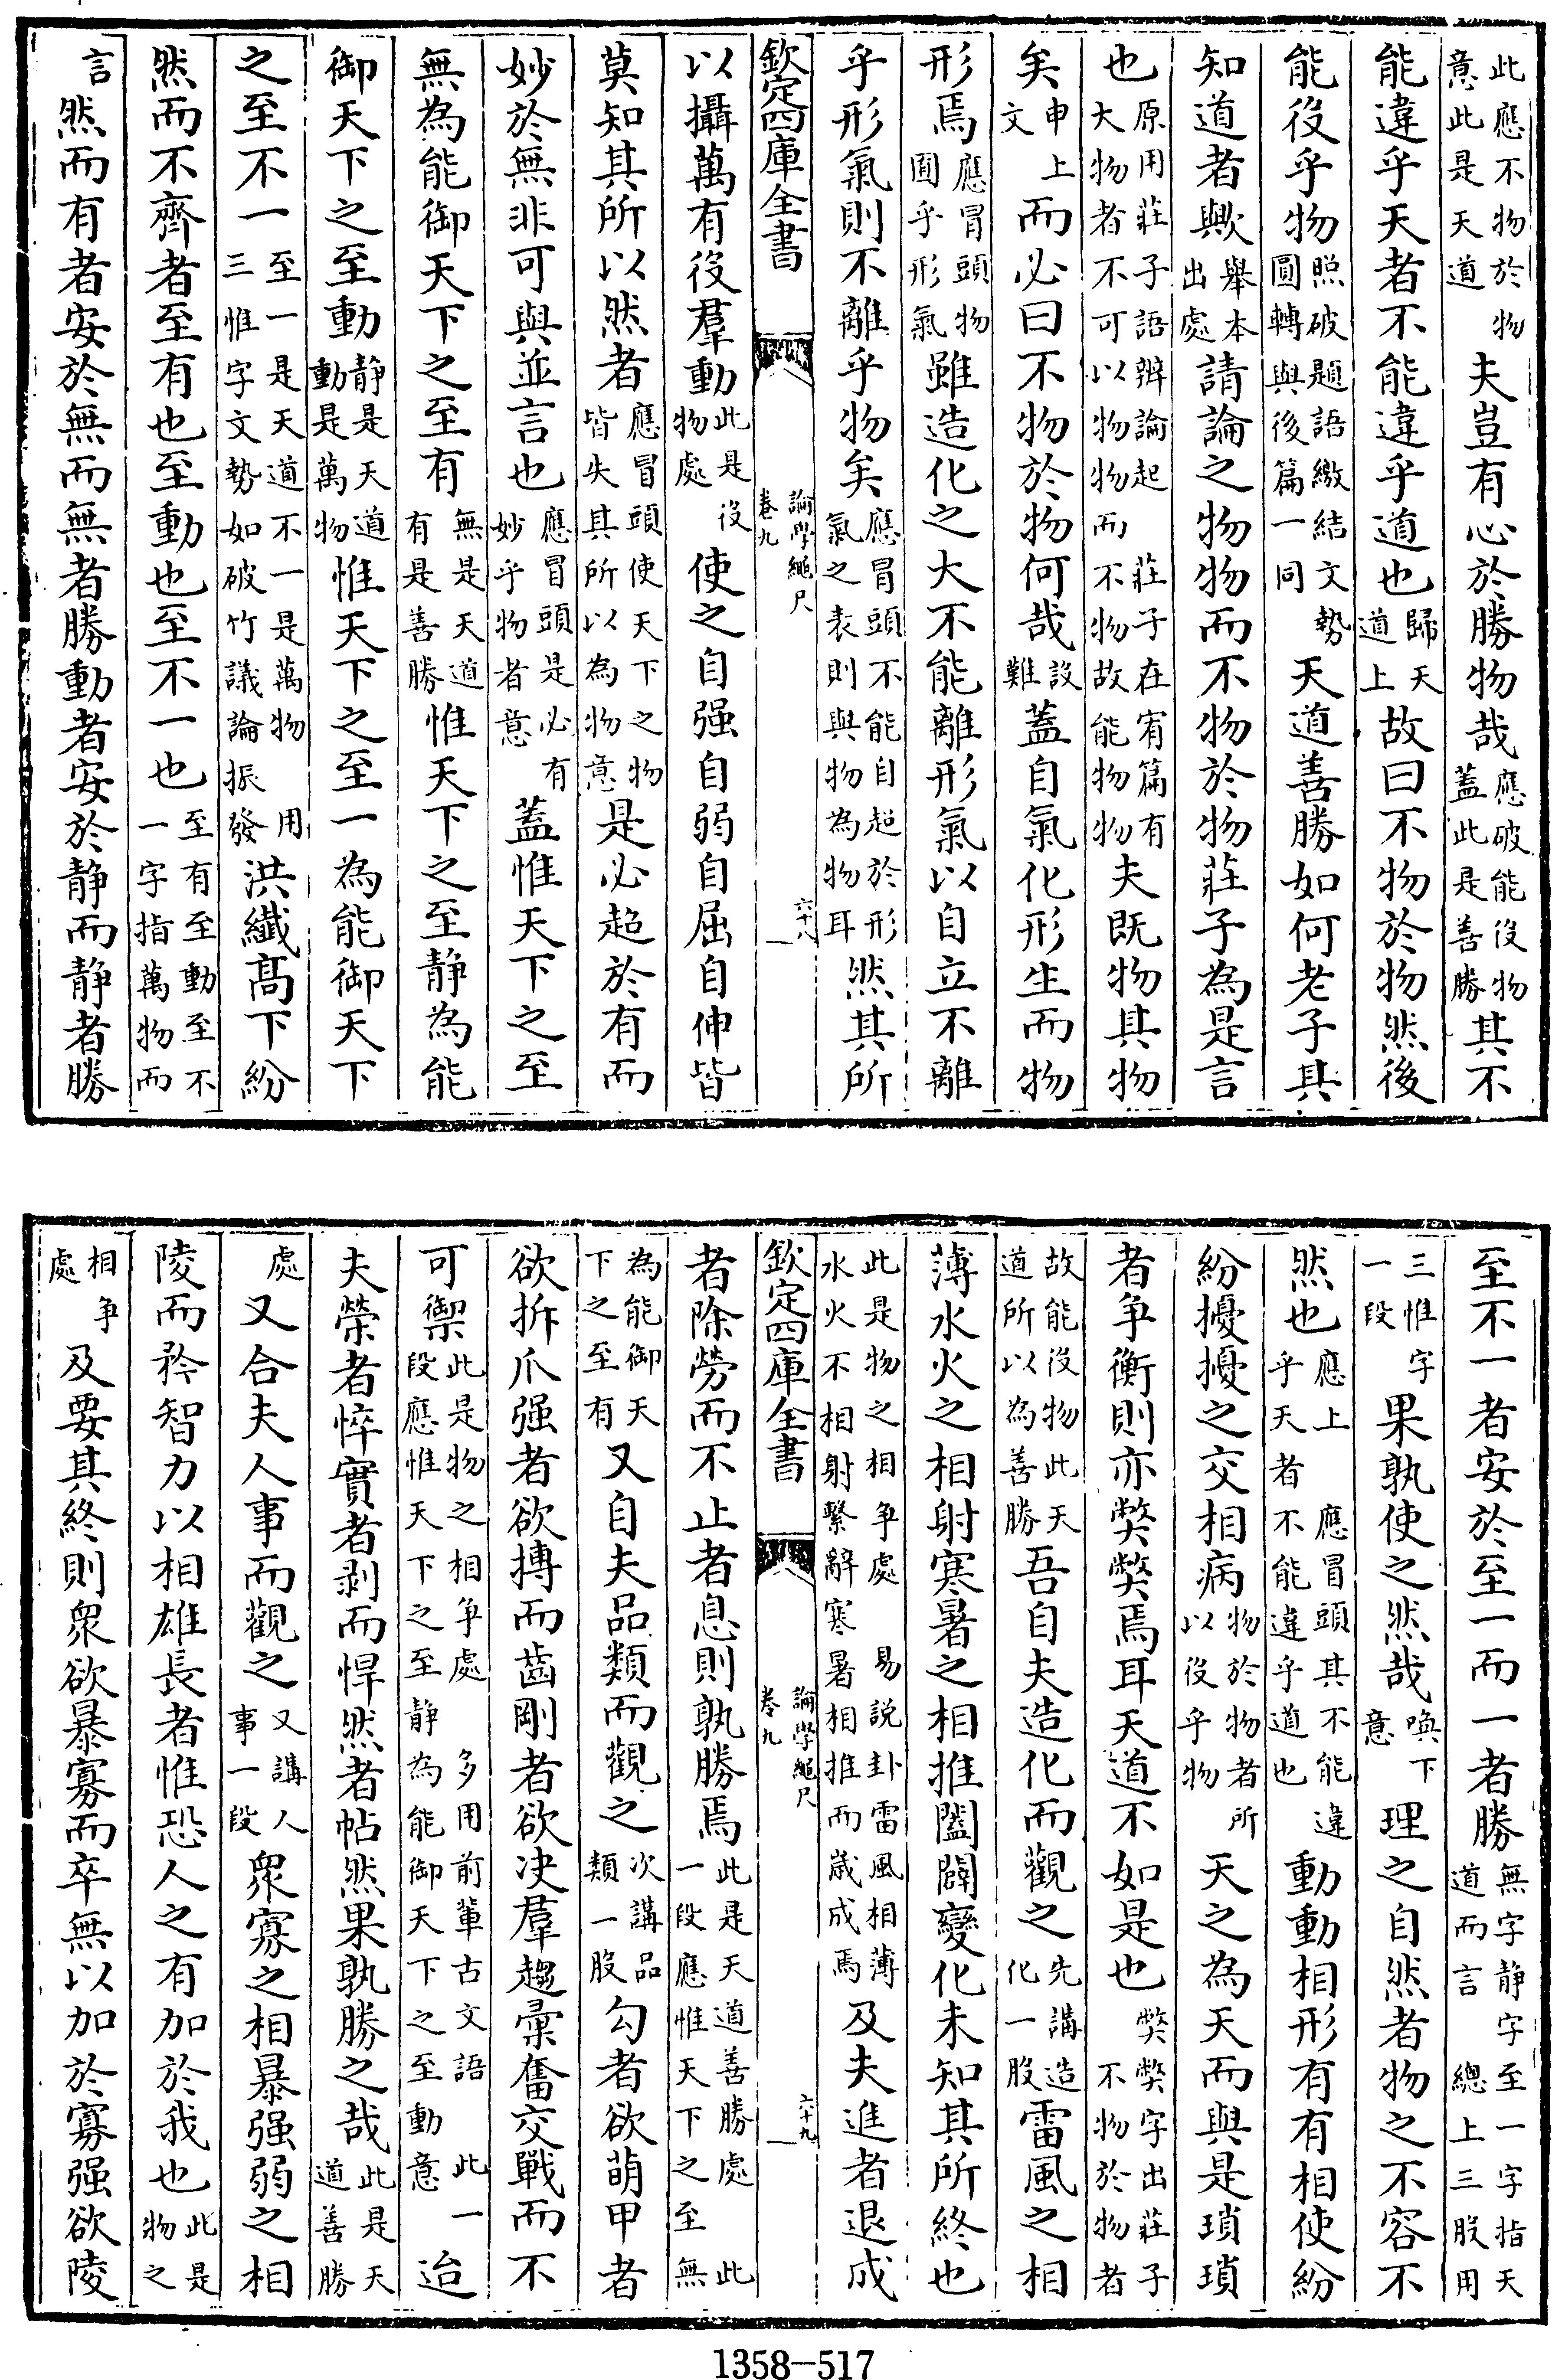 此應不物於物意此是天道夫豈有心於勝物哉應破能役物蓋此是善勝其不
能違乎天者不能違乎道也歸天道上故曰不物於物然後
能役乎物照破題語繳結文勢圓轉與後篇一同天道善勝如何老子其
知道者歟舉本出處請論之物物而不物於物莊子為是言
也原用莊子語辨論起大物者不可以物物而不物故能物物莊子在宥篇有夫既物其物
矣申上文而必曰不物於物何哉設難蓋自氣化形生而物
形焉應冒頭物圓乎形氣雖造化之大不能離形氣以自立不離
乎形氣則不離乎物矣應冒頭不能自超於形氣之表則與物為物耳然其所
欽定四庫全書
論學繩尺
卷九
六十八
以攝萬有役羣動此是役物處使之自强自弱自屈自伸皆
莫知其所以然者應冒頭使天下之物皆失其所以為物意是必超於有而
妙於無非可與並言也應冒頭是必有妙乎物者意蓋惟天下之至
無為能御天下之至有無是天道有是善勝惟天下之至静為能
御天下之至動静是天道動是萬物惟天下之至一為能御天下
之至不一至一是天道不一是萬物用三惟字文勢如破竹議論振發洪纖髙下紛
然而不齊者至有也至動也至不一也至有至動至不一字指萬物而
言然而有者安於無而無者勝動者安於静而静者勝
至不一者安於至一而一者勝無字静字至一字指天道而言總上三股用
三惟字一段果孰使之然哉喚下意理之自然者物之不容不
然也應上乎天者不能違乎道也應冒頭其不能違動動相形有有相使紛
紛擾擾之交相病物於物者所以役乎物天之為天而與是瑣瑣
者争衡則亦獘獘焉耳天道不如是也獘獘字出莊子不物於物者
故能役物此天道所以為善勝吾自夫造化而觀之先講造化一股雷風之相
薄水火之相射寒暑之相推闔闢變化未知其所終也
此是物之相争處易說卦雷風相薄水火不相射繫辭寒暑相推而歲成焉及夫進者退成
欽定四庫全書
論學繩尺
卷九
六十九
者除勞而不止者息則孰勝焉此是天道善勝處此一段應惟天下之至無
為能御天下之至有又自夫品類而觀之次講品類一股勾者欲萌甲者
欲拆爪强者欲搏而齒剛者欲决羣趨彙奮交戰而不
可禦此是物之相争處多用前輩古文語此一段應惟天下之至静為能御天下之至動意迨
夫榮者悴實者剥而悍然者帖然果孰勝之哉此是天道善勝
處又合夫人事而觀之又講人事一段衆寡之相暴强弱之相
陵而矜智力以相雄長者惟恐人之有加於我也此是物之
相争處及要其終則衆欲暴寡而卒無以加於寡强欲陵
1358—517